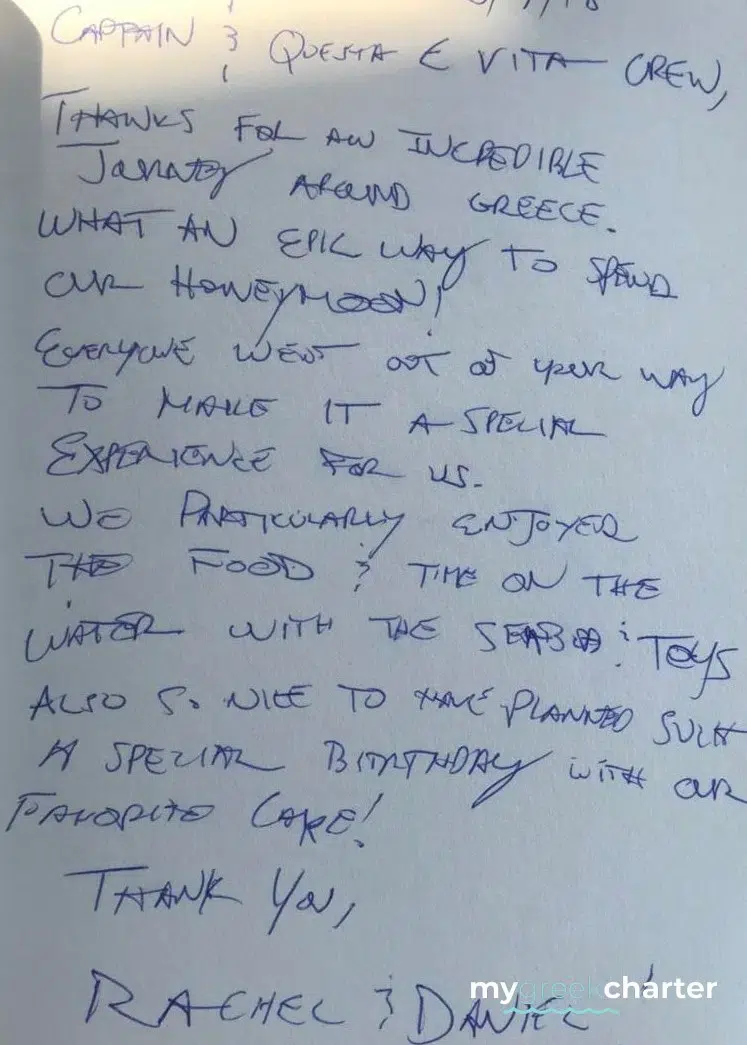 CAPTAIN & QUESTA E VITA CREW,
THANKS FOR AN INCREDIBLE
JOURNEY AROUND GREECE.
WHAT AN EPIC WAY TO SPEND
OUR HONEYMOON!
EVERYONE WENT OUT OF YOUR WAY
TO MAKE IT A SPECIAL
EXPERIENCE FOR US.
WE PARTICULARLY ENJOYED
THE FOOD & TIME ON THE
WATER WITH THE SEABOB & TOYS
ALSO SO NICE TO HAVE PLANNED SUCH
A SPECIAL BIRTHDAY WITH OUR
FAVORITE CAKE!
THANK YOU,
RACHEL & DANIEL
mygreekcharter